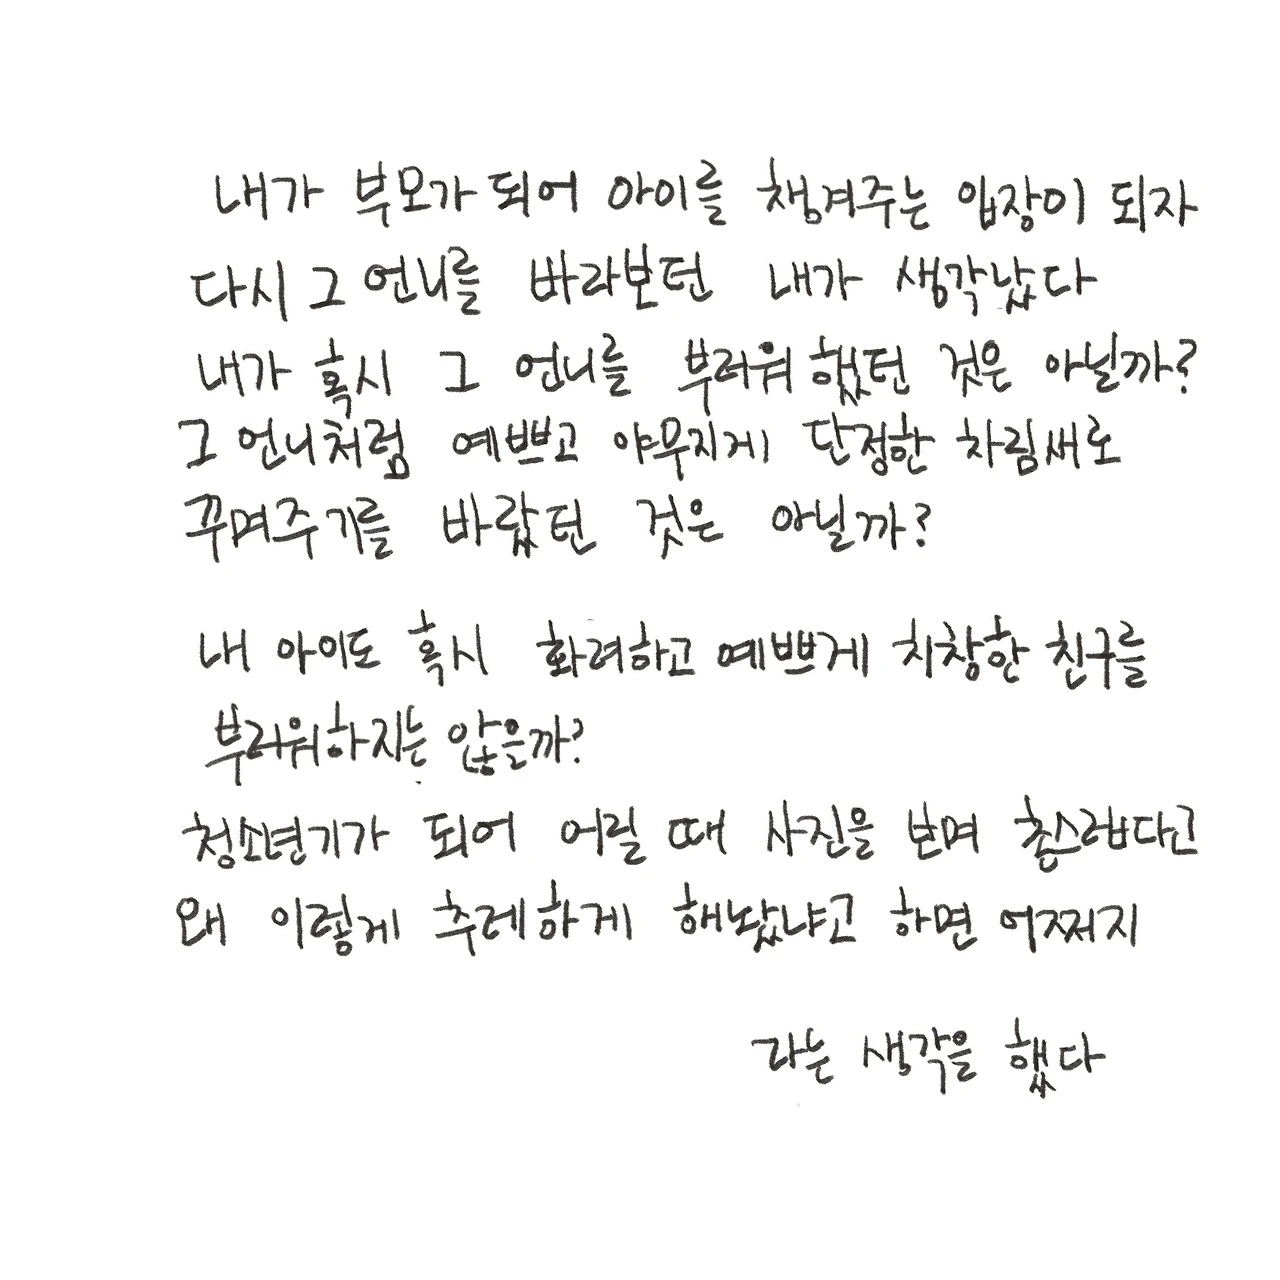 내가 부모가 되어 아이를 챙겨주는 입장이 되자
다시 그 언니를 바라보던 내가 생각났다
내가 혹시 그 언니를 부러워 했던 것은 아닐까?
그 언니처럼 예쁘고 야무지게 단정한 차림새로
꾸며주기를 바랐던 것은 아닐까?
내 아이도 혹시 화려하고 예쁘게 치장한 친구를
부러워하지는 않을까?
청소년기가 되어 어릴 때 사진을 보며 촌스럽다고
왜 이렇게 추레하게 해놨냐고 하면 어쩌지
라는 생각을 했다